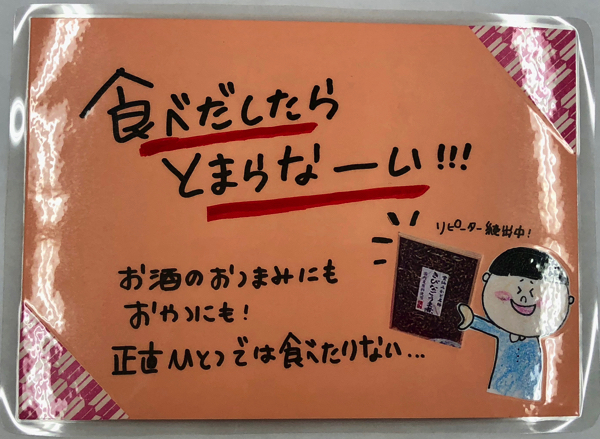 食べだしたら
とまらなーい!!!
リピーター続出中!
お酒のおつまみにも
おやつにも!
正直ひとつでは食べたりない...